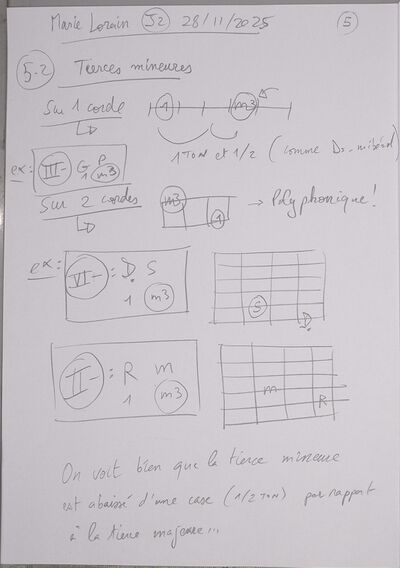 Marie Lorain J2 28/11/2025 5
5.2 Tierces mineures
Sur 1 corde 1 m3
1 TON et 1/2 (comme Do - mi bémol)
ex: III- G P
1 m3
Sur 2 cordes m3 1 → Polyphonique!
ex: VI- : D S
1 m3
S
D
II- : R m
1 m3
m
R
On voit bien que la tierce mineure
est abaissé d'une case (1/2 TON) par rapport
à la tierce majeure...